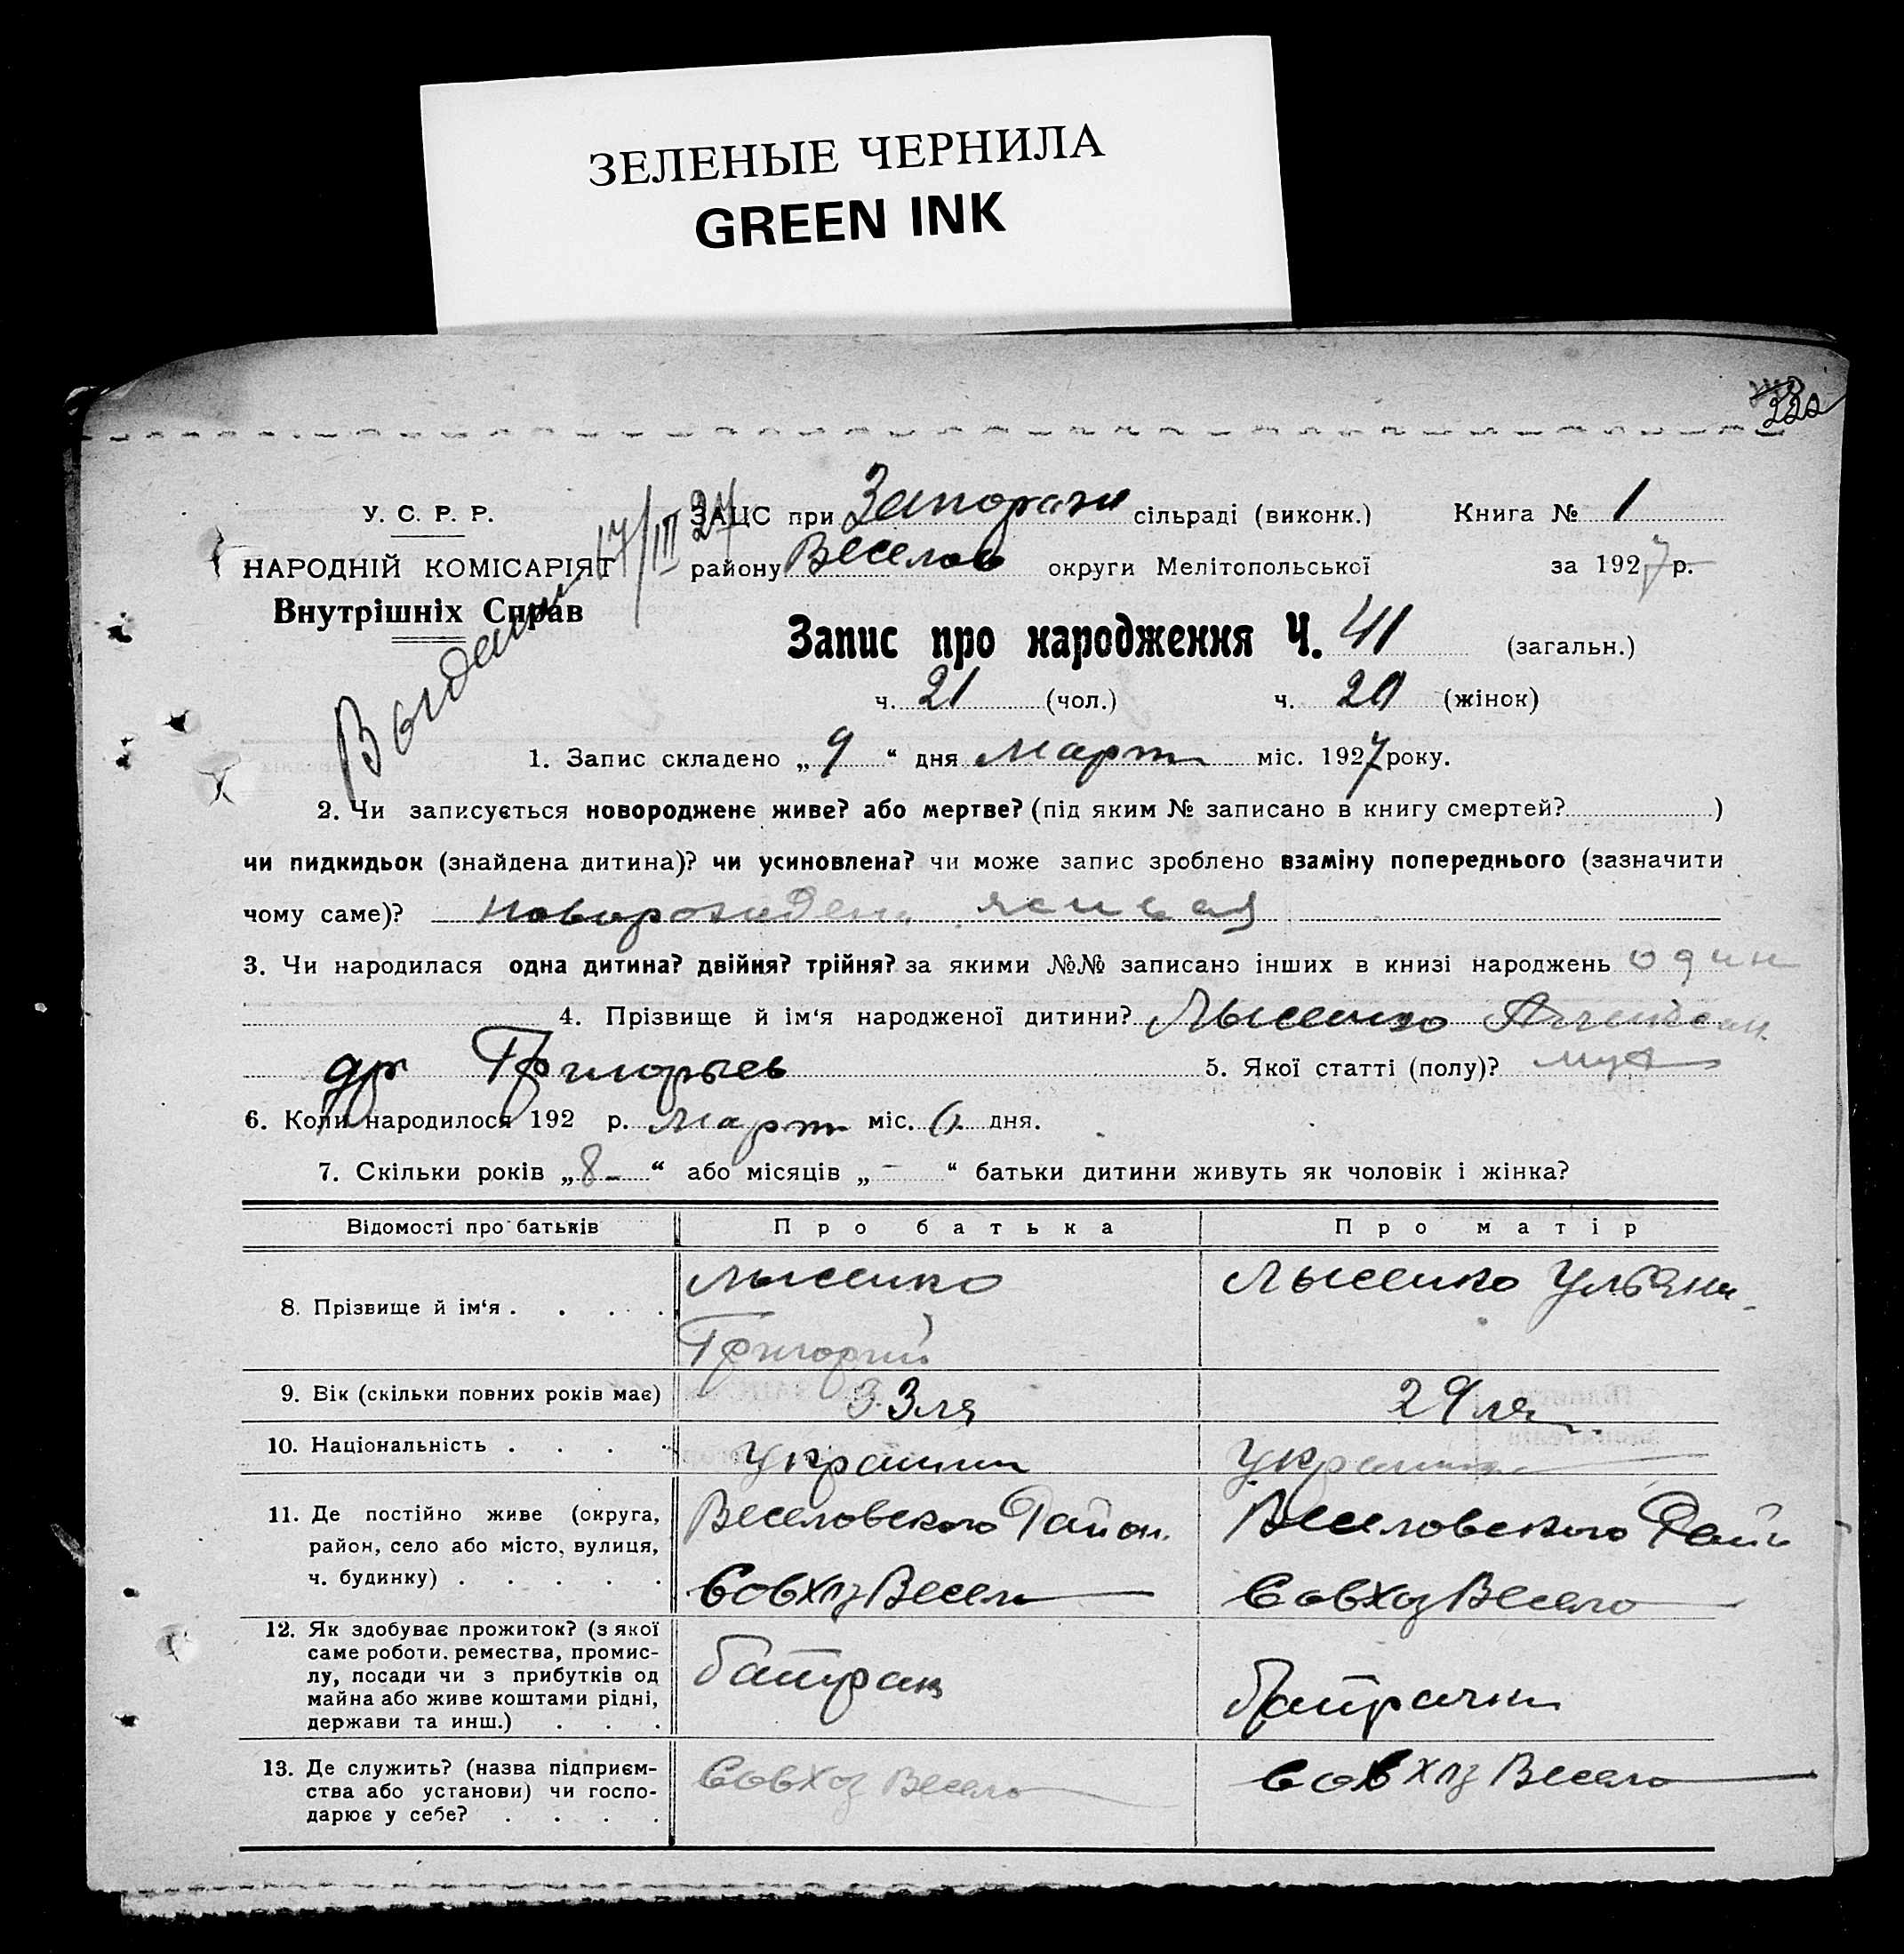 ЗЕЛЕНЫЕ ЧЕРНИЛА
GREEN INK
220
У. С. Р. Р.
НАРОДНІЙ КОМІСАРІЯТ
Внутрішніх Справ
17/III 27
ЗАЦС при Запорожи сільраді (виконк.) Книга № 1
району Веселов округи Мелітопольської за 1927 р.
Запис про народження Ч. 41 (загальн.)
ч. 21 (чол.) ч. 20 (жінок)
1. Запис складено „ 9 “ дня март міс. 1927 року.
2. Чи записується новороджене живе? або мертве? (під яким № записано в книгу смертей? )
чи пидкидьок (знайдена дитина)? чи усиновлена? чи може запис зроблено взаміну попереднього (зазначити
чому саме)? живая
3. Чи народилася одна дитина? двійня? трійня? за якими №№ записано інших в книзі народжень один
4. Прізвище й ім‘я народженої дитини? Лысенко Александ
др Григорьев 5. Якої статті (полу)? муж
6. Коли народилося 192 р. март міс. 6 дня.
7. Скільки років „ 8 - “ або місяців „ - “ батьки дитини живуть як чоловік і жінка?
Відомості про батьків Про батька Про матір
8. Прізвище й ім‘я . . . . Лысенко Григорий Лысенко Ульяна
9. Вік (скільки повних років має) 33 ля 29 ле
10. Національність . . . . Украинц
11. Де постійно живе (округа, район, село або місто, вулиця, ч. будинку) . . . . . Веселовского Район. Совхоз Весел Веселовского Райн Совхоз Весело
12. Як здобуває прожиток? (з якої саме роботи, ремества, промис-лу, посади чи з прибутків од майна або живе коштами рідні, держави та инш.) . . . Батрак Батрачка
13. Де служить? (назва підприєм-ства або установи) чи госпо-дарює у себе? . . . . Совхоз Весело Совхоз Весело